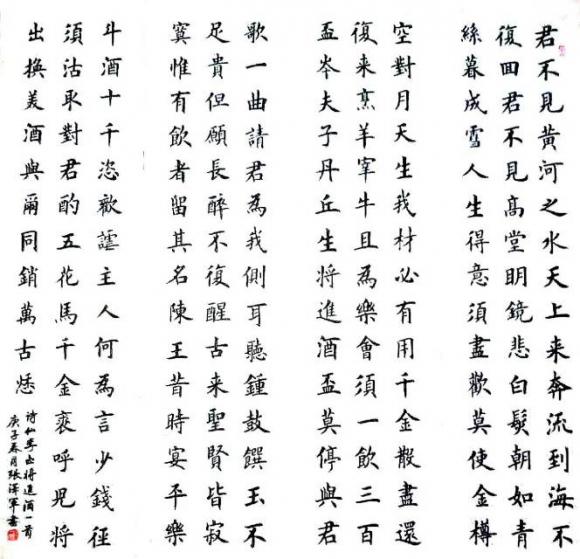 君不見黄河之水天上来奔流到海不
復回君不見高堂明鏡悲白髮朝如青
絲暮成雪人生得意須盡歡莫使金樽
空對月天生我材必有用千金散盡還
復来烹羊宰牛且為樂會須一飲三百
盃岑夫子丹丘生将進酒盃莫停與君
歌一曲請君為我側耳聽鍾鼓饌玉不
足貴但願長醉不復醒古来聖賢皆寂
寞惟有飲者留其名陳王昔時宴平樂
斗酒十千恣歡謔主人何為言少錢徑
須沽取對君酌五花馬千金裘呼児将
出換美酒與爾同銷萬古愁
诗仙李白将進酒一首
庚子春月張澤軍書